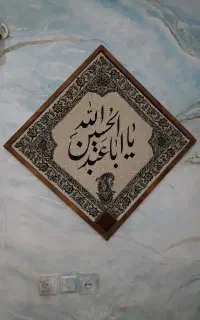 یا اباعبدالله الحسین